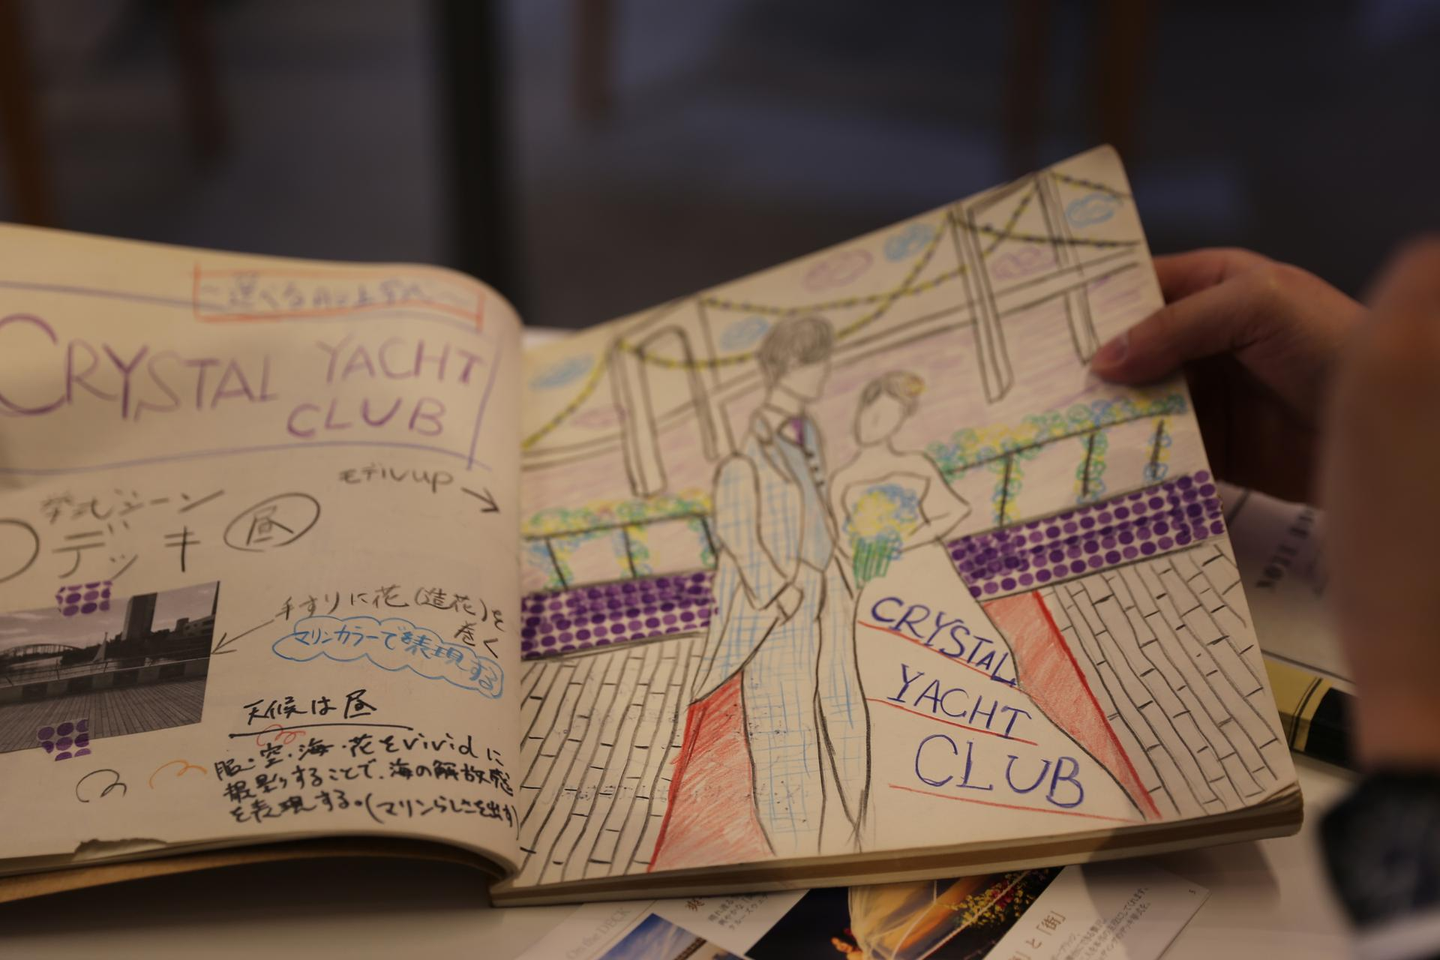 CRYSTAL YACHT
CLUB
モデルup
挙式シーン
デッキ 昼
手すりに花(造花)を
巻く
マリンカラーで表現する
天候は昼
服・空・海・花をvividに
撮影することで、海の解放感
を表現する。(マリンらしさを出す)
CRYSTAL
YACHT
CLUB
と「街」